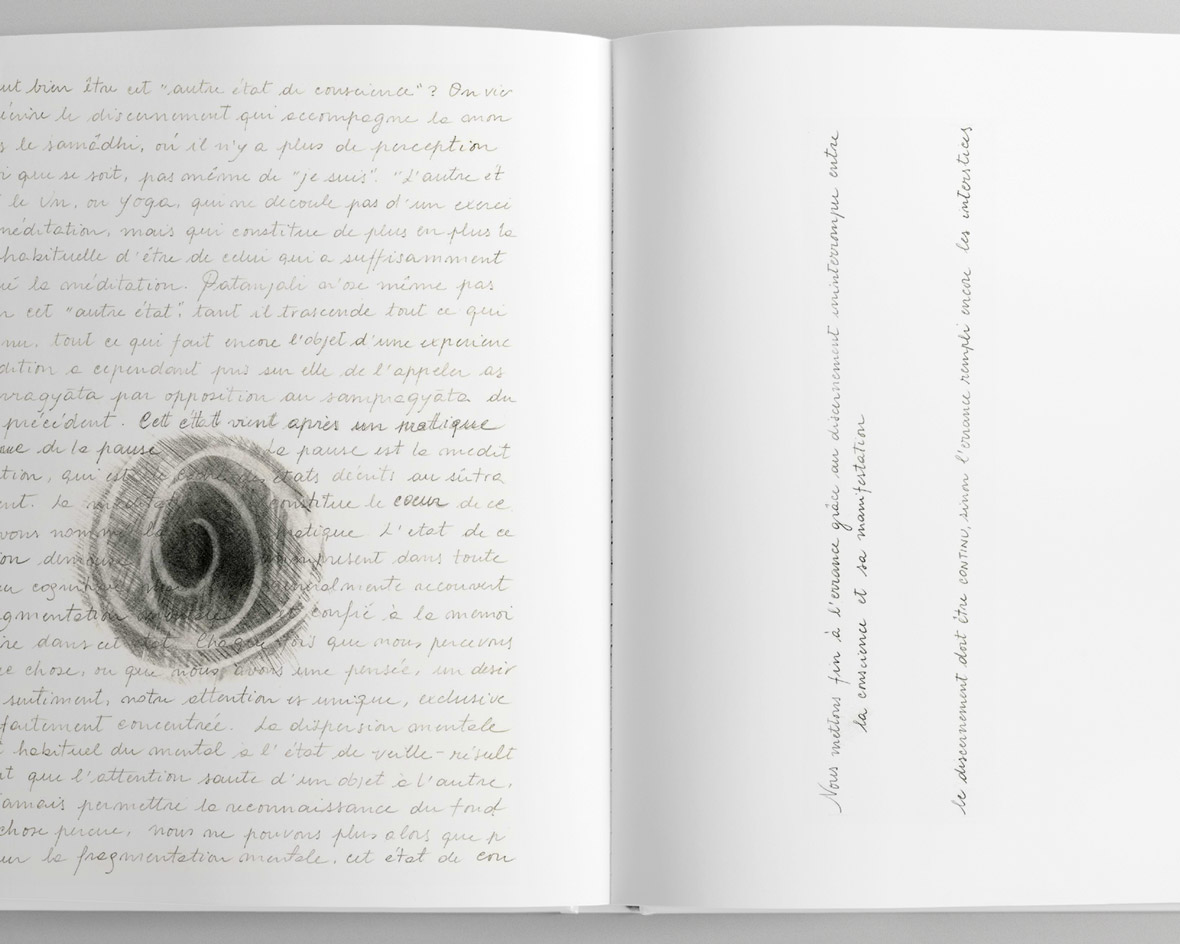 ut bien être cet "autre état de conscience"? On vie
le discernement qui accompagne le mon
s le samâdhi, où il n'y a plus de perception
i que se soit, pas même de "je suis". "L'autre ét
le Un, ou Yoga, qui ne découle pas d'un exerci
méditation, mais qui constitue de plus en plus la
habituelle d'être de celui qui a suffisamment
ué la méditation. Patanjali n'ose même pas
cet "autre état", tant il trascende tout ce qui
nu, tout ce qui fait encore l'objet d'une experienc
dition a cependant pris sur elle de l'appeler as
par opposition au sampragyāta du
précédent. Cet état vient après un pratique
de la pause la pause est la medit
tion, qui est états décrits au sûtra
ent. La constitue le coeur de ce
vous nommé la pratique L'etat de ce
on demeure dans toute
cognitive generalmente recouvert
gmentation et confié à la memoi
ire dans cet état. Chaque fois que nous percevons
e chose, ou que nous avons une pensée, un desir
sentiment, notre attention es unique, exclusive
faitement concentrée. La dispersion mentale
t habituel du mental a l'état de veille-résult
t que l'attention saute d'un objet à l'autre,
jamais permettre la reconnaissance du fond
chose perçue, nous ne pouvons plus alors que p
ur la fragmentation mentale, cet état de con
Nous mettons fin à l'errance grâce au discernement ininterrompue entre
la conscience et sa manifestation
le discernement doit être CONTINU, sinon l'errance rempli encore les interstices